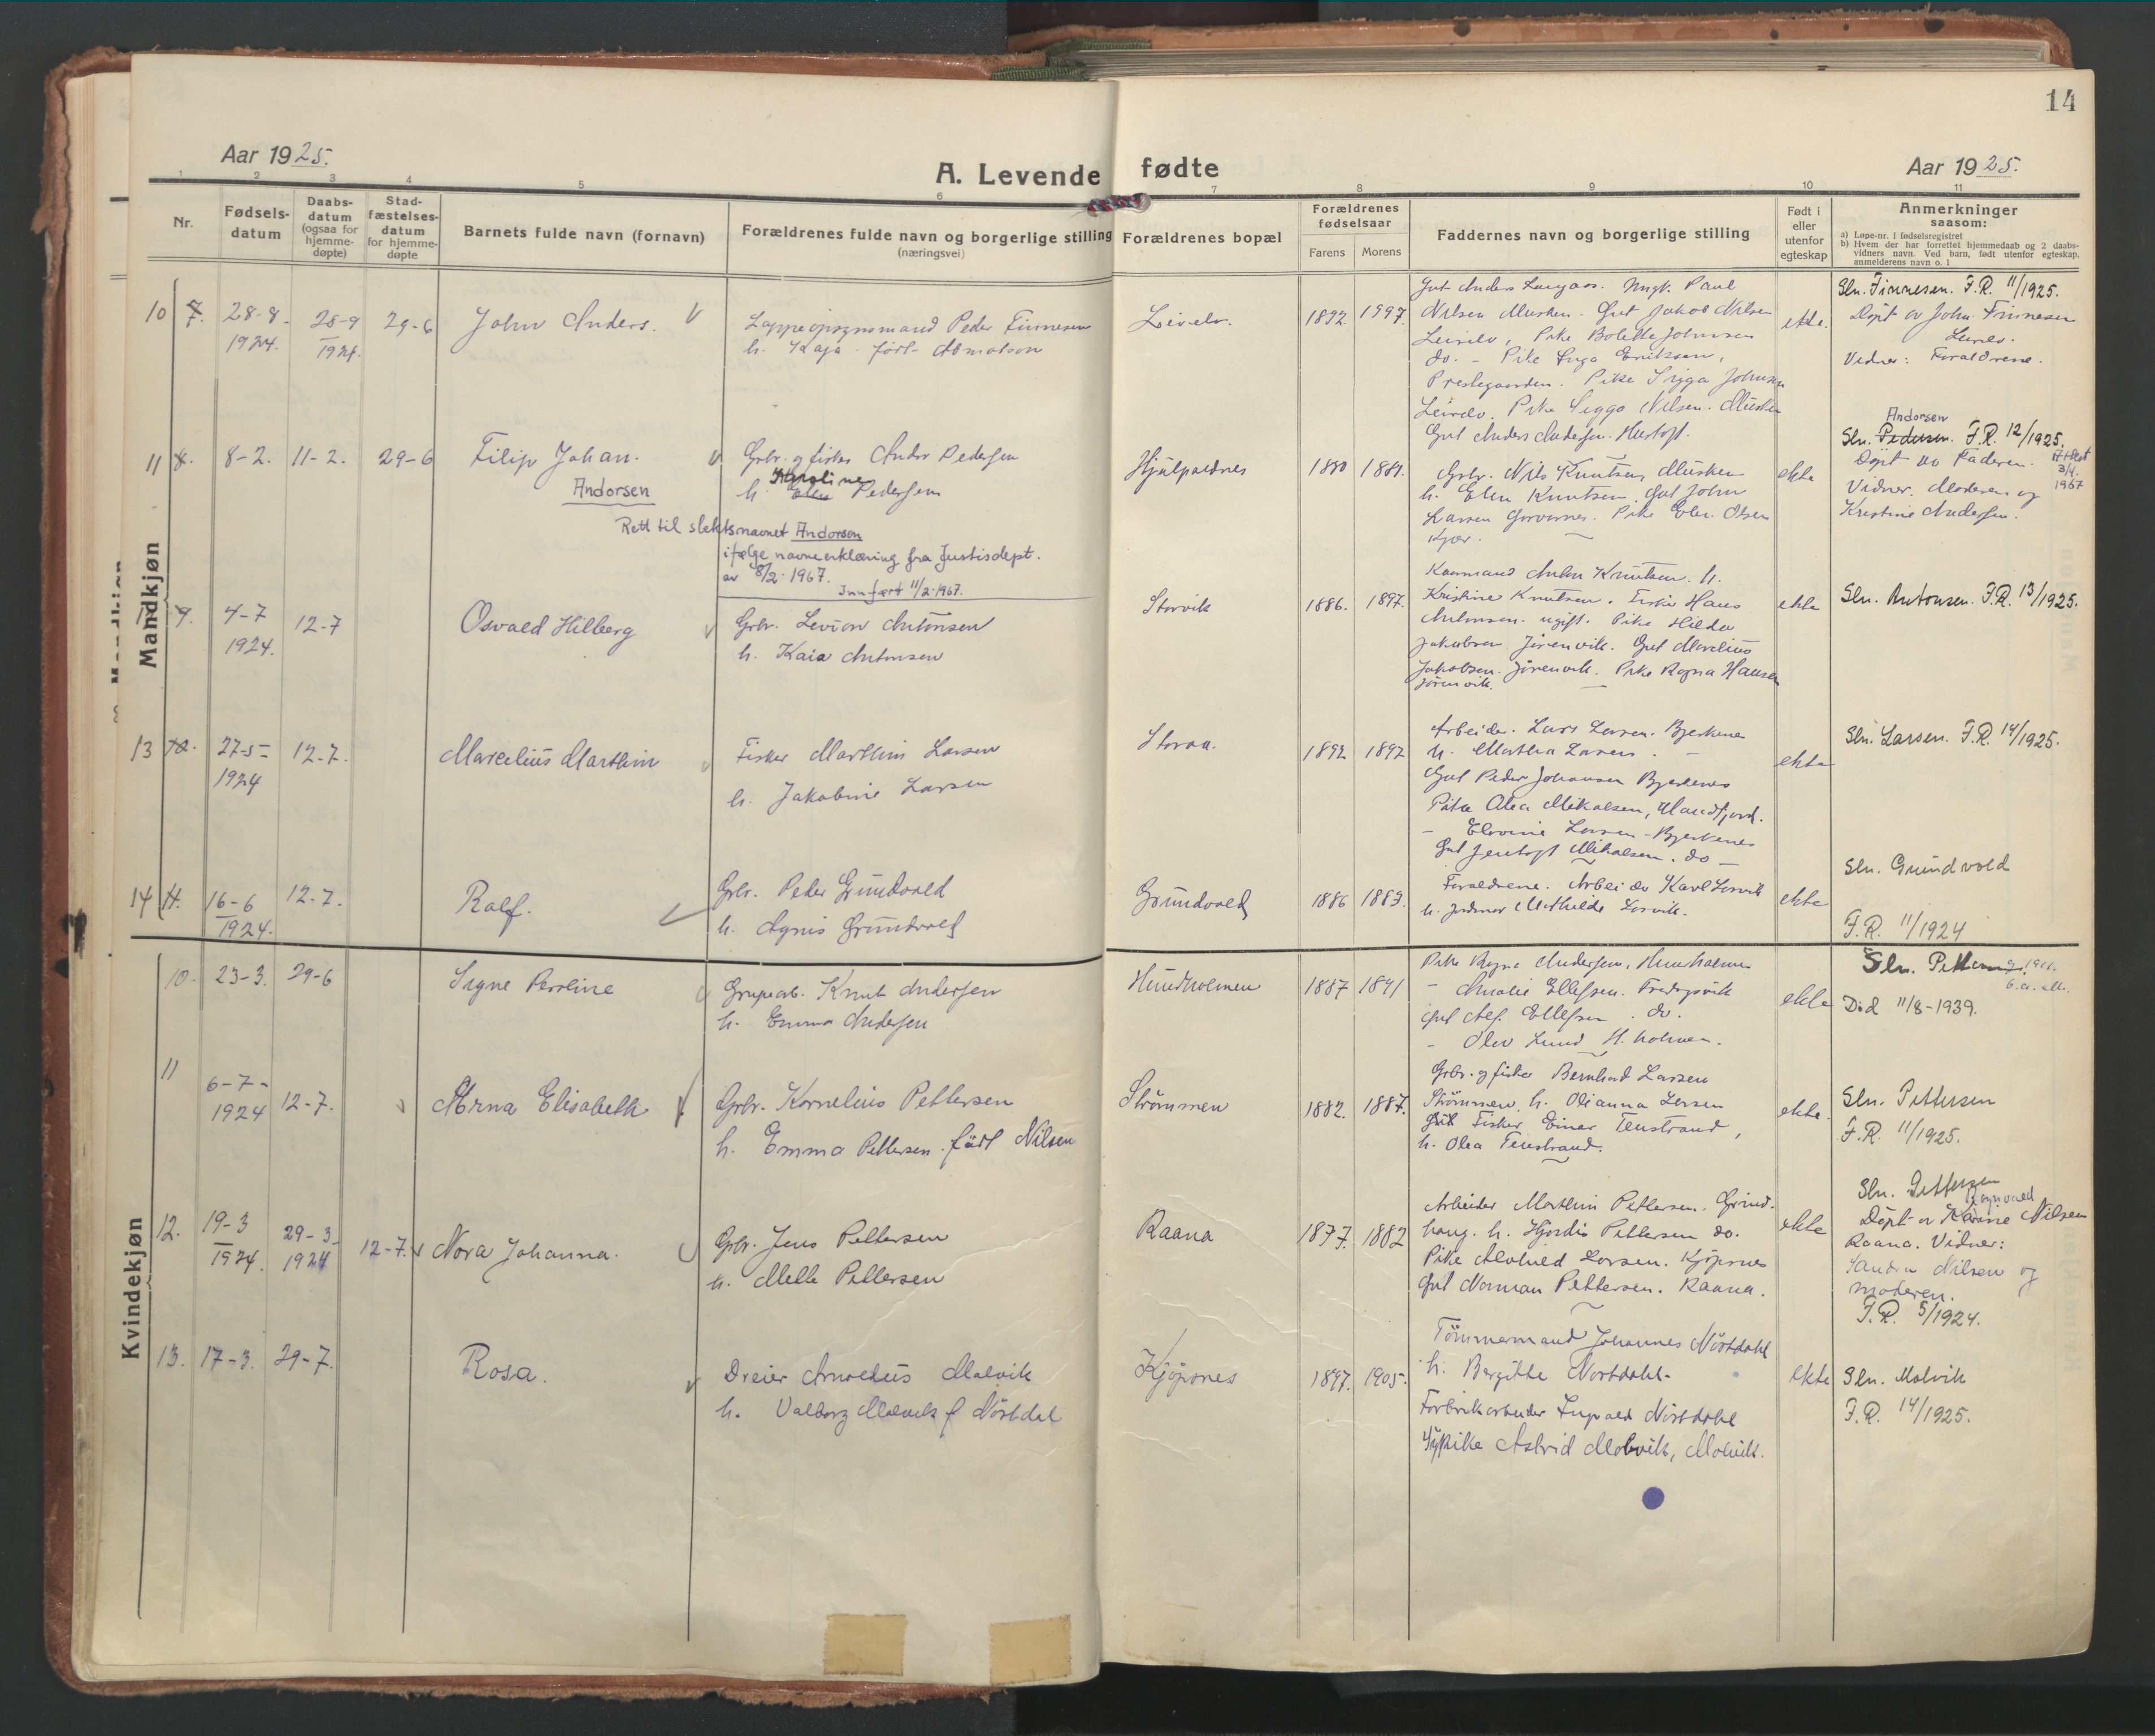 14
Aar 1925.
A. Levende fødte
Aar 1925.
1 2 3 4 5 6 7 8 9 10 11
Nr.
Fødsels-
datum
Daabs-
datum
(ogsaa for
hjemme-
døpte)
Stad-
fæstelses-
datum
for hjemme-
døpte
Barnets fulde navn (fornavn)
Forældrenes fulde navn og borgerlige stilling
(næringsvei)
Forældrenes bopæl
Forældrenes
fødselsaar
Farens
Morens
Faddernes navn og borgerlige stilling
Født i
eller
utenfor
egteskap
Anmerkninger
saasom:
a) Løpe-nr. i fødselsregistret
b) Hvem der har forrettet hjemmedaab og 2 daabs-
vidners navn. Ved barn, født utenfor egteskap,
anmelderens navn o. l
Mandkjøn
10 7. 28-8- 1924. 28-9 1924. 29-6
John Anders.
Lappeopsynsmand Peder Finnesen
h. Kaja født
1892
ekte.
Gut Anders Ungk. Paul
Nilsen Musken. Gut Jakob Nilsen
Pike Bolette Johnsen
do. - Pike Inga Eriksen,
Prestegaarden. Pike Sigga Johnsen
Pike Sigga Nilsen. Musken
Gut Anders Andersen.
Sln. Finnesen. F.R. 11/1925.
Døpt av John Finnesen
Vidner: Forældrene.
11 8. 8-2. 11-2. 29-6
Filip Johan.
Andorsen
Grbr. og fisker Andor Pedersen
h. Karoline Pedersen
Rett til slektsnavnet Andorsen
ifølge navneerklæring fra Justisdept.
av 8/2-1967.
Innført 11/2-1967.
1880 1881.
ekte
Grbr. Nils Knutsen, Musken
h. Elen Knutsen. Gut John
Larsen Pike Olsen
Kjær.
Andorsen
Sln. Pedersen. F.R. 12/1925.
Døpt av Faderen.
3/4.
1967
Vidner. Moderen og
Kristine Andersen.
9. 4-7 1924. 12-7
Osvald Hilberg
Grbr. Levion Antonsen
h. Kaia Antonsen
Storvik
1886. 1897.
ekte
Kaarmand Anton Knutsen. h.
Kristine Knutsen. Fisker Hans
Antonsen. ugift. Pike Hilda
Jakobsen Jørenvik. Gut Marelius
Jakobsen. Jørenvik. Pike Ragna Hansen
Jørenvik.
Sln. Antonsen. F.R. 13/1925.
13 10. 27-5- 1924 12-7.
Marcelius Marthin
Fisker Marthin Larsen
h. Jakobine Larsen
Storaa.
1892 1892
ekte
Arbeider. Lars Larsen. Bjerkenes
h. Martha Larsen. -
Gut Peder Johansen Bjerkenes
Pike Alea Mikalsen, Mandfjord.
- Elovine Larsen - Bjerkenes
Gut Jentoft Mikalsen. do -
Sln. Larsen. F.R. 14/1925.
14 11. 16-6 1924. 12-7.
Ralf.
Grbr. Peder Grundvold
h. Agnis Grundvold
Grundvold
1886 1883.
ekte
Forældrene. Arbeider Karl Lorvik
h. Jordmor Mathilde Lorvik.
Sln. Grundvold
F.R. 11/1924
Kvindekjøn
10. 23-3. 29-6
Signe Peroline
Grupearb. Knut Andersen
h. Emma Andersen
Hundholmen
1887 1891
ekte
Pike Ragna Andersen, Hundholmen
- Amalie Ellefsen. Fredagsvik
Gut Alf. Ellefsen. do.
- Olav Lund H. holmen.
Sln.
Död 11/8-1939.
11 6-7- 1924 12-7.
Arna Elisabeth
Grbr. Kornelius Pettersen
h. Emma Pettersen. født Nilsen
Strømmen
1882. 1887.
ekte.
Grbr. og fisker Bernhard Larsen
Strømmen, h. Olianna Larsen
Gut Fisker Einar Teustrand,
h. Olea Teustrand.
Sln. Pettersen
F.R. 11/1925.
12. 19-3 1924. 29-3- 1924 12-7.
Nora Johanna.
Grbr. Jens Pettersen
h. Melle Pettersen
Raana
1877. 1882
ekte
Arbeider Marthin Pettersen. Grind-
haug. h. Hjordis Pettersen do.
Pike Alvhild Larsen. Kjøpsnes
Gut Norman Pettersen. Raana.
Sln. Pettersen
Døpt av Nilsen
Raana. Vidner:
Sandra Nilsen og
moderen.
F.R. 5/1924.
13. 17-3. 29-7.
Rosa.
Dreier Arnoldus Malvik
h. Valborg Malvik f. Nøstdal
Kjøpsnes
1897. 1905.
ekte
Tømmermand Johannes Nøstdahl
h. Bergitte Nøstdahl-
Fabrikarbeider Ingvald Nøstdahl
Sypike Astrid Malvik, Malvik.
Sln. Malvik
F.R. 14/1925.